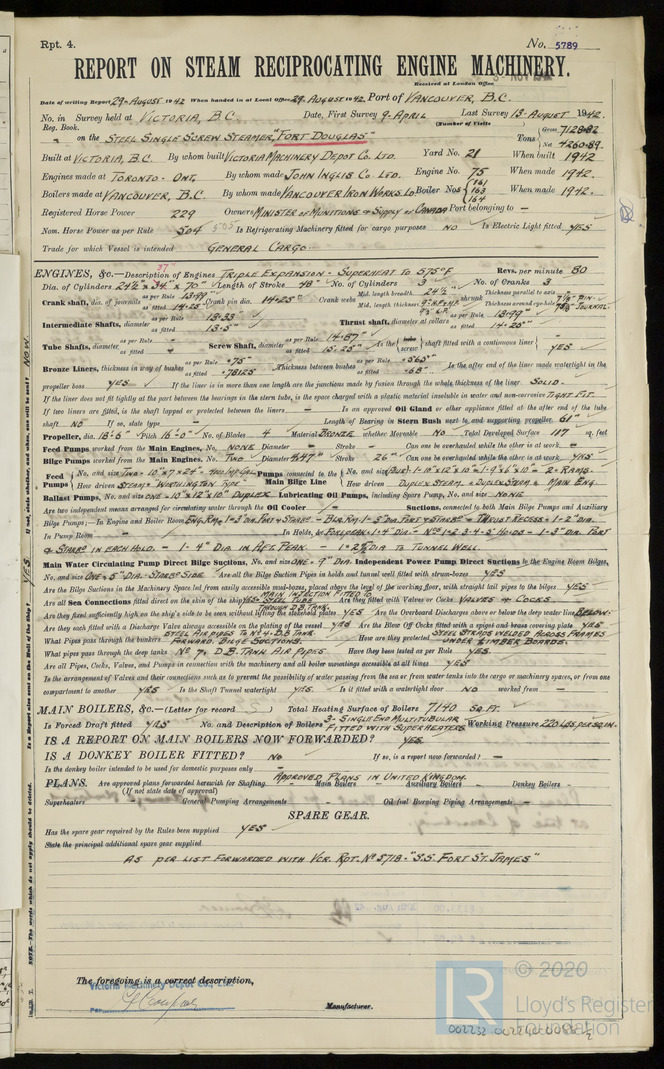 Rpt. 4.
No. 5789
REPORT ON STEAM RECIPROCATING ENGINE MACHINERY.
Received at London Office
Date of writing Report 29-AUGUST 1942 When handed in at Local Office 29-AUGUST 1942. Port of VANCOUVER, B.C.
No. in Survey held at VICTORIA, B.C. Date, First Survey 9-APRIL Last Survey 13-AUGUST 1942.
Reg. Book. (Number of Visits
on the STEEL SINGLE SCREW STEAMER, "FORT DOUGLAS" Tons Gross 7128.82 Net 4260.89
Built at VICTORIA, B.C. By whom built VICTORIA MACHINERY DEPOT CO. LTD. Yard No. 21 When built 1942
Engines made at TORONTO - ONT. By whom made JOHN INGLIS CO. LTD. Engine No. 75 When made 1942.
Boilers made at VANCOUVER, B.C. By whom made VANCOUVER IRON WORKS LD. Boiler Nos 161 163 164 When made 1942.
Registered Horse Power 229 Owners MINISTER OF MUNITIONS & SUPPLY OF CANADA Port belonging to —
Nom. Horse Power as per Rule 504 505 Is Refrigerating Machinery fitted for cargo purposes NO Is Electric Light fitted YES
Trade for which Vessel is intended GENERAL CARGO.
ENGINES, &c.—Description of Engines TRIPLE EXPANSION - SUPERHEAT TO 575°F Revs. per minute 80
Dia. of Cylinders 24½" x 37 x 70" Length of Stroke 48" No. of Cylinders 3 No. of Cranks 3
Crank shaft, dia. of journals as per Rule 13.99" as fitted 14.25" Crank pin dia. 14.25" Crank webs Mid. length breadth 24½" Mid. length thickness shrunk Thickness parallel to axis Thickness around eye-hole
Intermediate Shafts, diameter as per Rule 13.33" as fitted 13.5" Thrust shaft, diameter at collars as per Rule 13.99" as fitted 14.25"
Tube Shafts, diameter as per Rule — as fitted — Screw Shaft, diameter as per Rule 14.87" as fitted 15.25" Is the tube screw shaft fitted with a continuous liner YES
Bronze Liners, thickness in way of bushes as per Rule .75" as fitted .78125 Thickness between bushes as per Rule .565" as fitted .68" Is the after end of the liner made watertight in the
propeller boss YES If the liner is in more than one length are the junctions made by fusion through the whole thickness of the liner SOLID.
If the liner does not fit tightly at the part between the bearings in the stern tube, is the space charged with a plastic material insoluble in water and non-corrosive TIGHT FIT.
If two liners are fitted, is the shaft lapped or protected between the liners — Is an approved Oil Gland or other appliance fitted at the after end of the tube
shaft NO If so, state type — Length of Bearing in Stern Bush next to and supporting propeller 61"
Propeller, dia. 18'-6" Pitch 16'-0" No. of Blades 4 Material BRONZE whether Moveable NO Total Developed Surface 117 sq. feet
Feed Pumps worked from the Main Engines, No. NONE Diameter — Stroke — Can one be overhauled while the other is at work —
Bilge Pumps worked from the Main Engines, No. TWO Diameter Stroke 26" Can one be overhauled while the other is at work YES
Feed Pumps No. and size TWO - 10" x 7" x 24" How driven STEAM - "WORTHINGTON TYPE" Pumps connected to the Main Bilge Line No. and size 2 - RAMS. How driven DUPLEX STEAM & DUPLEX STEAM & MAIN ENG.
Ballast Pumps, No. and size ONE - 10" x 12" x 10" DUPLEX Lubricating Oil Pumps, including Spare Pump, No. and size NONE
Are two independent means arranged for circulating water through the Oil Cooler — Suctions, connected both to Main Bilge Pumps and Auxiliary
Bilge Pumps;—In Engine and Boiler Room ENG. RM. 1-3" DIA. PORT & STARBD. - BLR. RM. 1-3" DIA PORT & STARBD. - THRUST RECESS - 1-2" DIA.
In Pump Room — In Holds, &c FOREPEAK - 1-4" DIA - Nos 1-2-3-4-5 HOLDS - 1-3" DIA. PORT
& STARBD. IN EACH HOLD. - 1-4" DIA. IN AFT. PEAK. - 1-2½" DIA TO TUNNEL WELL.
Main Water Circulating Pump Direct Bilge Suctions, No. and size ONE - 9" DIA. Independent Power Pump Direct Suctions to the Engine Room Bilges,
No. and size ONE - 5" DIA. - STARBD SIDE Are all the Bilge Suction Pipes in holds and tunnel well fitted with strum-boxes YES
Are the Bilge Suctions in the Machinery Space led from easily accessible mud-boxes, placed above the level of the working floor, with straight tail pipes to the bilges YES
Are all Sea Connections fitted direct on the skin of the ship YES - MAIN INJECTION FITTED TO STEEL TUBE THROUGH D.B. TANK. Are they fitted with Valves or Cocks VALVES & COCKS
Are they fixed sufficiently high on the ship's side to be seen without lifting the stokehold plates YES Are the Overboard Discharges above or below the deep water line BELOW.
Are they each fitted with a Discharge Valve always accessible on the plating of the vessel YES Are the Blow Off Cocks fitted with a spigot and brass covering plate YES
What Pipes pass through the bunkers STEEL AIR PIPES TO No 4 - D.B TANK. FORWARD BILGE SUCTIONS. How are they protected STEEL STRAPS WELDED ACROSS FRAMES UNDER LIMBER BOARDS.
What pipes pass through the deep tanks No 7 - D.B TANK AIR PIPES Have they been tested as per Rule YES.
Are all Pipes, Cocks, Valves, and Pumps in connection with the machinery and all boiler mountings accessible at all times YES
Is the arrangement of Valves and their connections such as to prevent the possibility of water passing from the sea or from water tanks into the cargo or machinery spaces, or from one
compartment to another YES Is the Shaft Tunnel watertight YES. Is it fitted with a watertight door NO worked from —
MAIN BOILERS, &c.—(Letter for record S) Total Heating Surface of Boilers 7140 SQ. FT.
Is Forced Draft fitted YES No. and Description of Boilers 3 - SINGLE END MULTITUBULAR FITTED WITH SUPERHEATERS Working Pressure 220 LBS. PER SQ. IN.
IS A REPORT ON MAIN BOILERS NOW FORWARDED? YES.
IS A DONKEY BOILER FITTED? NO If so, is a report now forwarded? —
Is the donkey boiler intended to be used for domestic purposes only —
PLANS. Are approved plans forwarded herewith for Shafting APPROVED PLANS IN UNITED KINGDOM. Main Boilers Auxiliary Boilers Donkey Boilers
(If not state date of approval)
Superheaters General Pumping Arrangements Oil fuel Burning Piping Arrangements
SPARE GEAR.
Has the spare gear required by the Rules been supplied YES
State the principal additional spare gear supplied
AS PER LIST FORWARDED WITH VCR. RPT. No 5718 - "S.S. FORT ST. JAMES"
The foregoing is a correct description,
Victoria Machinery Depot Co., Ltd.
Per
Manufacturer.
NOTE.—The words which do not apply should be deleted.
LR
© 2020
Lloyd's Register
Foundation